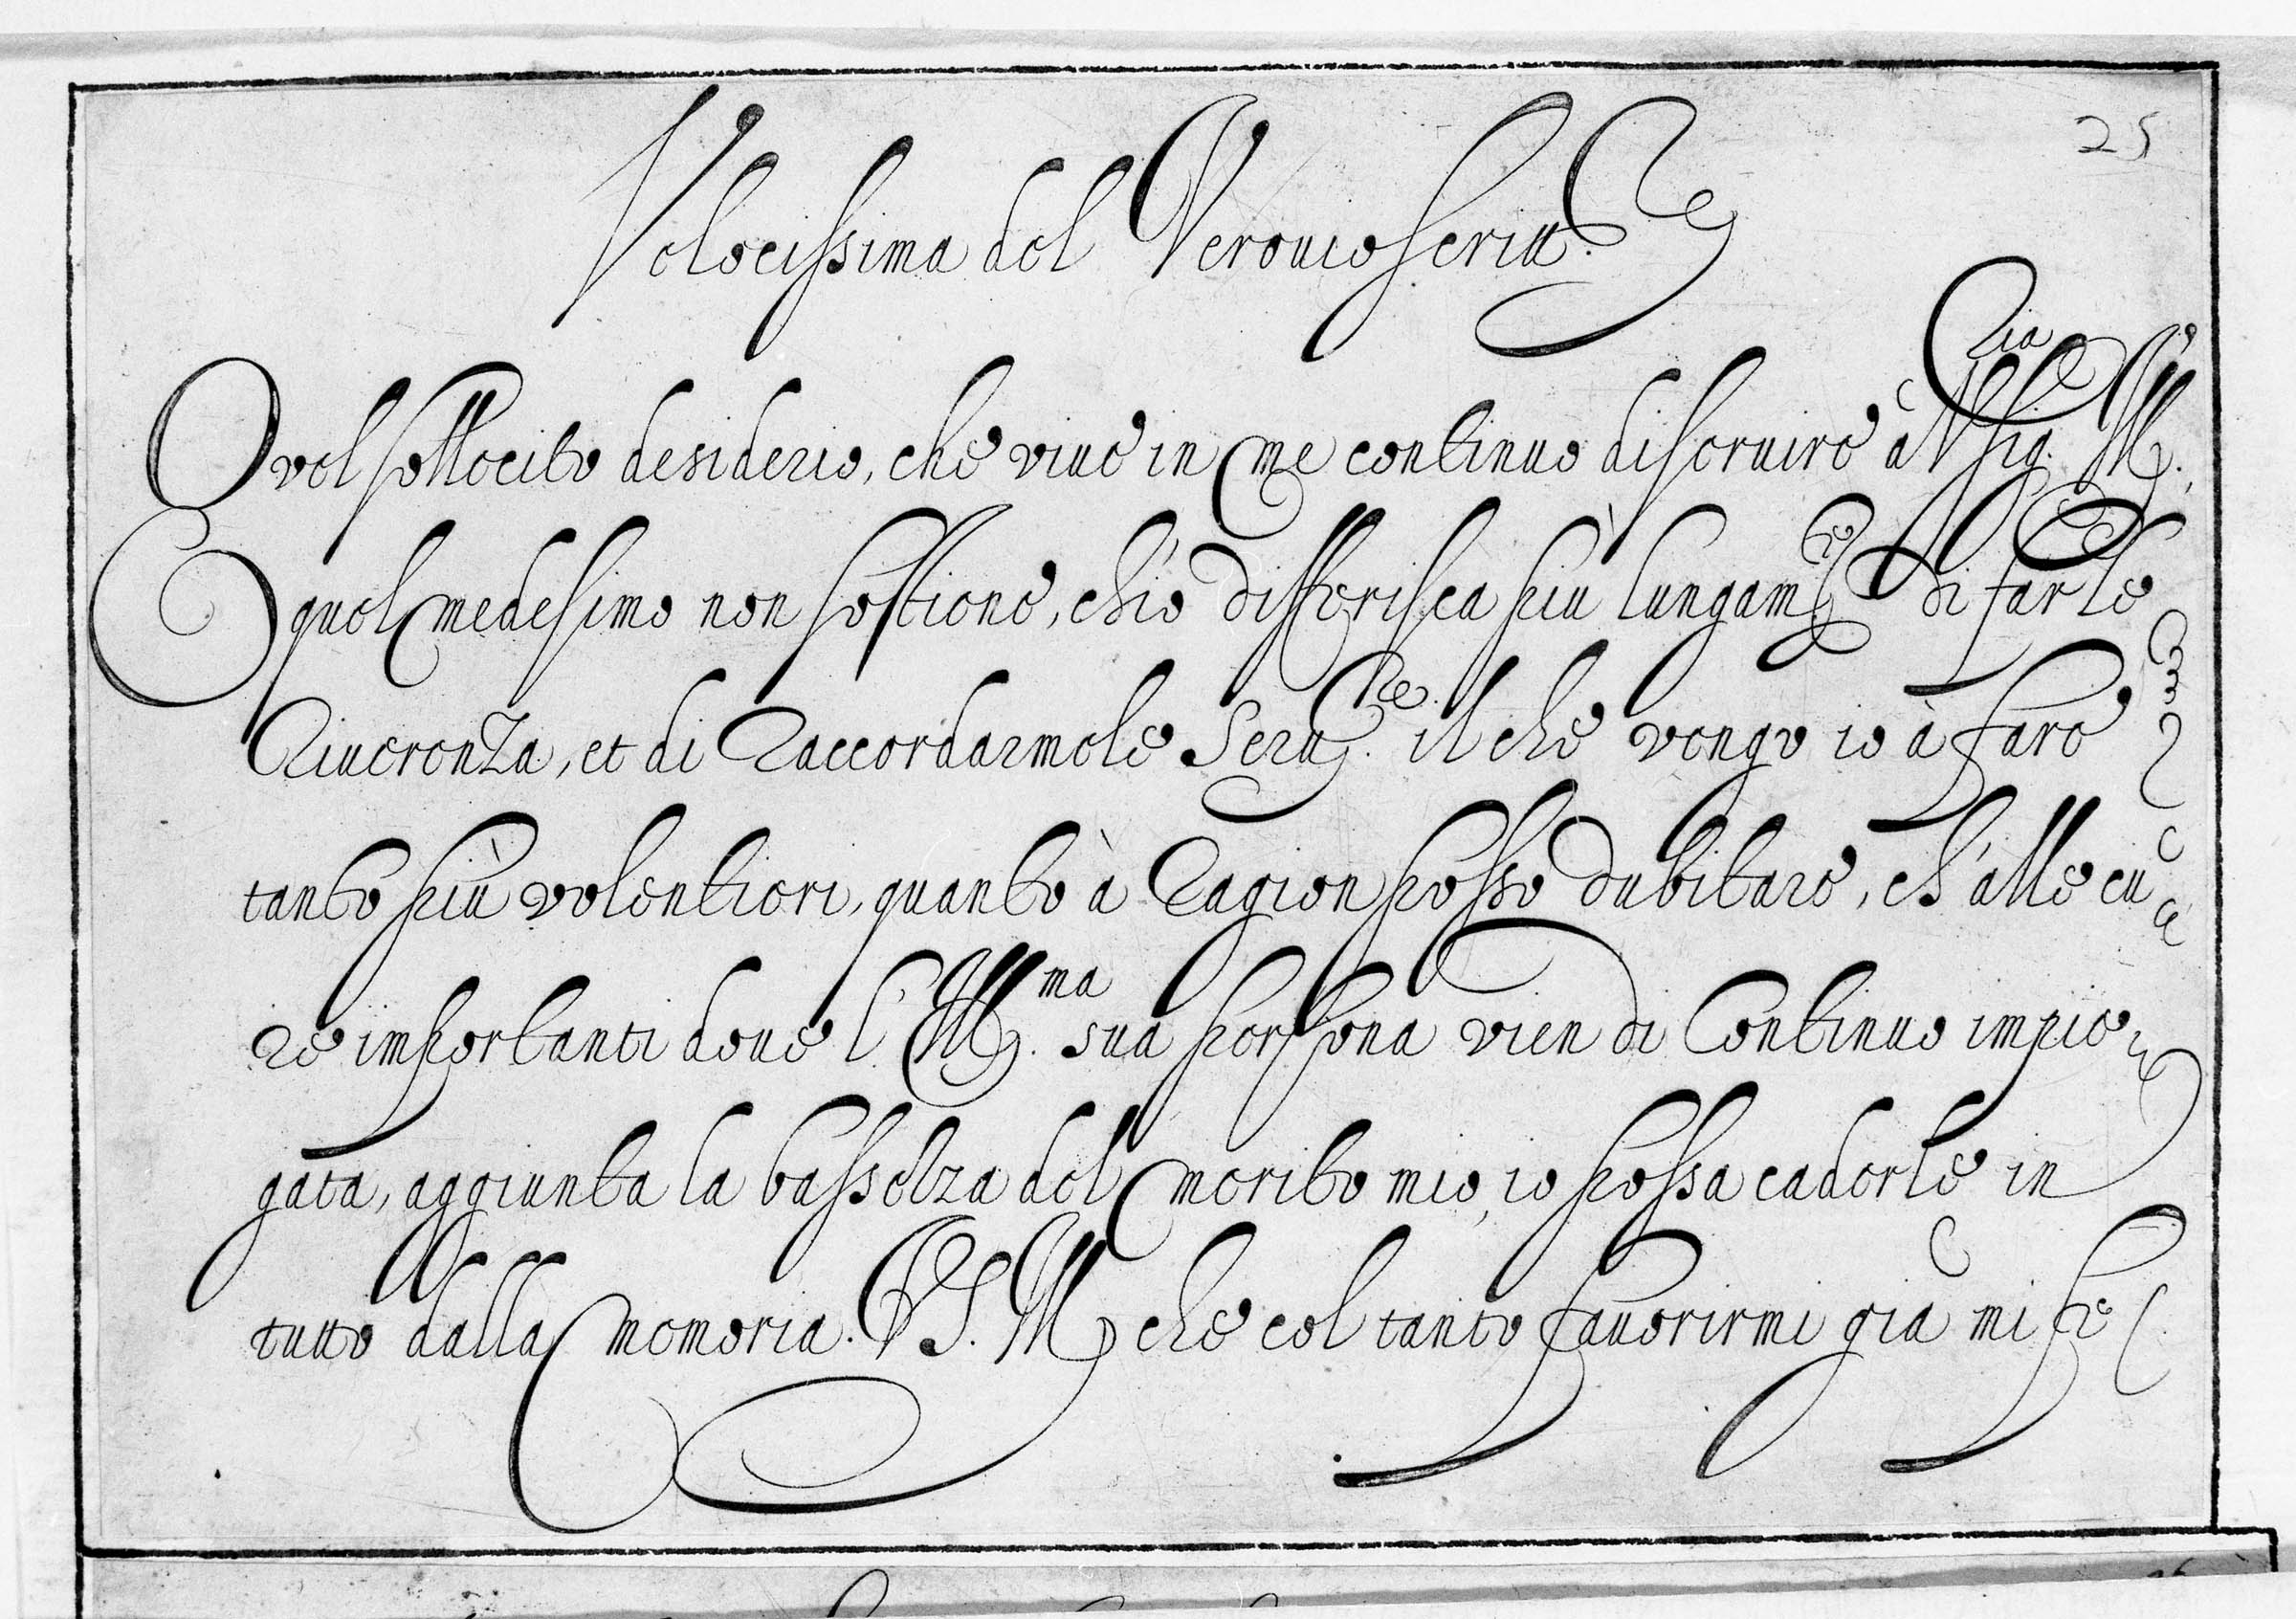 25
Velocissima del Verouio scritt.re
Quel sollecito desiderio, che viue in me continuo di seruire à V. sig.ria Ill.
quel medesimo non sostiene, ch'io differisca più lungam.te di farle
Riuerenza, et di Raccordarmele Seru.re il che vengo io à fare
tanto più volentieri, quanto à Ragion posso dubitare, ch'alle cu
re importanti doue l'Ill.ma sua persona vien di Continuo impie
gata, aggiunta la bassezza del merito mio, io possa caderle in
tutto dalla memoria. V.S. Ill che col tanto fauorirmi già mi fe